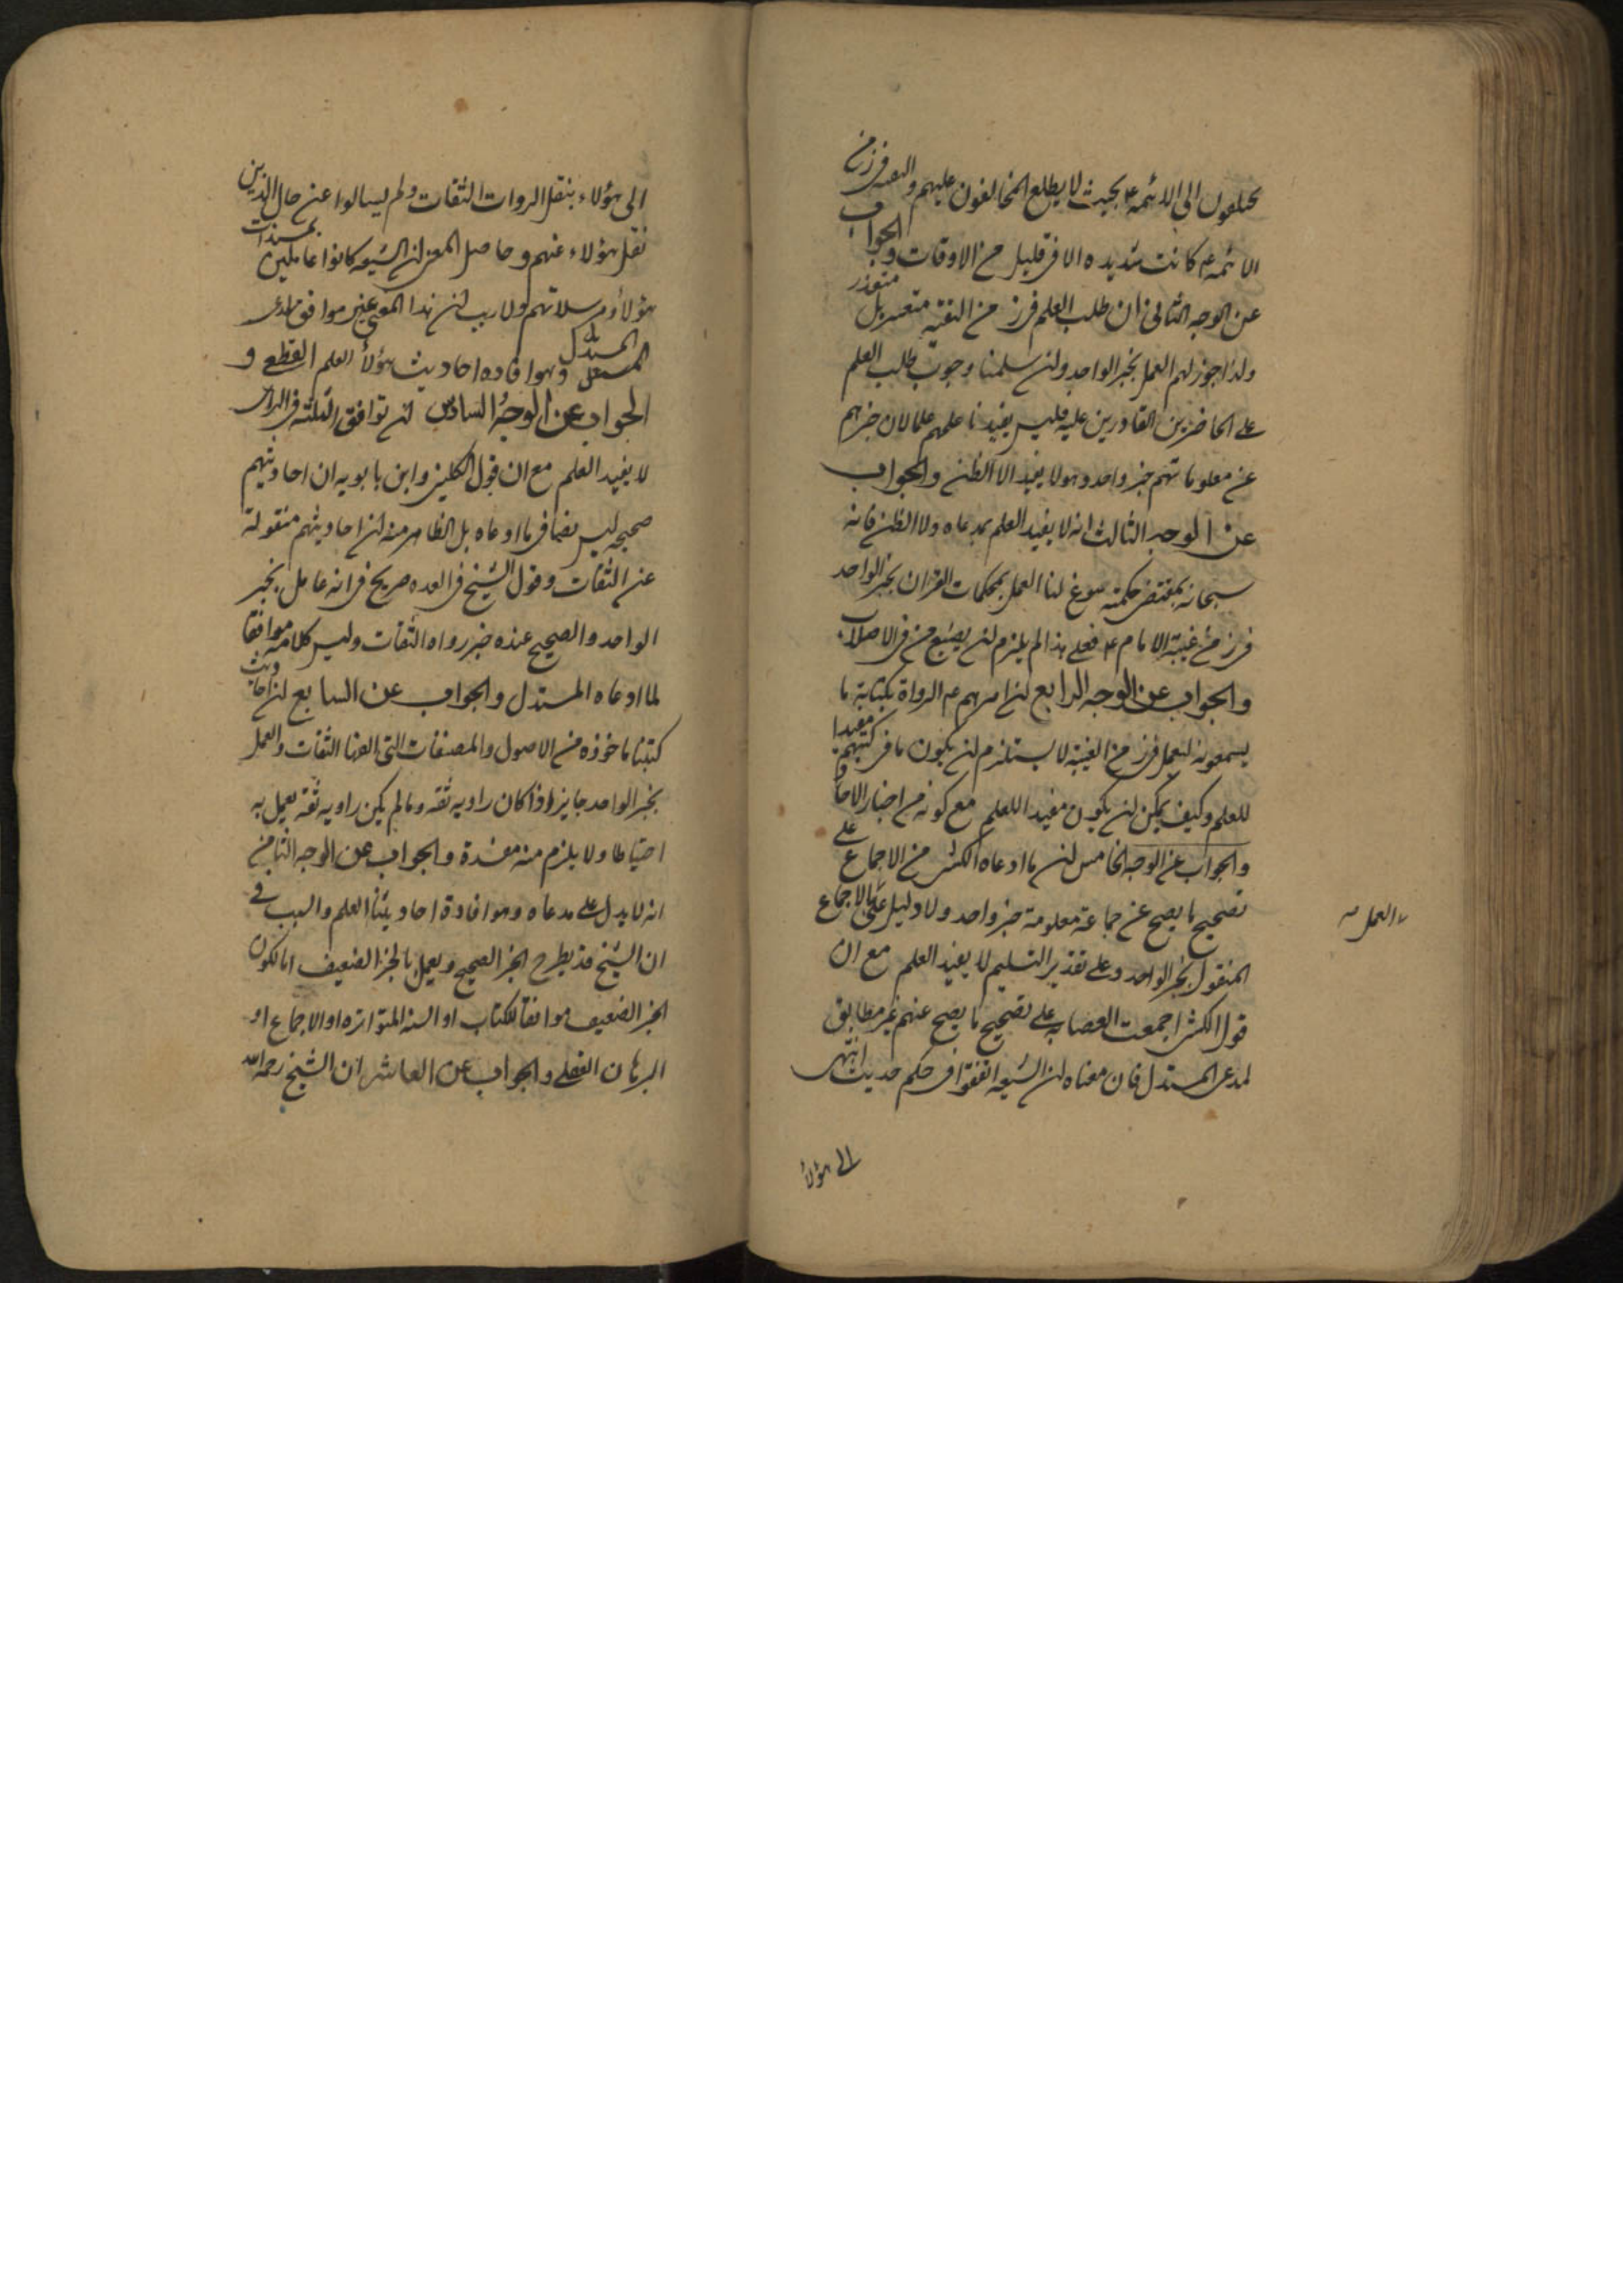 يختلفون الى الائمه ع بحيث لا يطلع المخالفون عليهم والتقيه فى زمن
الائمه ع كانت شديده الا فى قليل من الاوقات والجواب
عن الوجه الثانى ان طلب العلم فى زمن التقيه متعسر بل متعذر
ولذا جوز لهم العمل بخبر الواحد ولئن سلمنا وجوب طلب العلم
على الحاضرين القادرين عليه فليس يفيدنا علمهم علما لان خبرهم
عن معلوماتهم خبر واحد وهو لا يفيد الا الظن والجواب
عن الوجه الثالث انه لا يفيد العلم بمدعاه ولا الظن فانه
سبحانه بمقتضى حكمته سوغ لنا العمل بمحكمات القران بخبر الواحد
فى زمن غيبة الامام ع فعلى هذا لم يلزم ان يضيع من فى الاصلاب
والجواب عن الوجه الرابع ان امرهم ع الرواة بكتابة ما
يسمعونه ليعمل فى زمن الغيبة لا يستلزم ان يكون ما فى كتبهم مفيدا
للعلم وكيف يمكن ان يكون مفيدا للعلم مع كونه من اخبار الاحاد
والجواب عن الوجه الخامس ان ما ادعاه الكشى من الاجماع على
تصحيح ما يصح عن جماعة معلومة خبر واحد ولا دليل على الاجماع
العمل
المنقول بخبر الواحد وعلى تقدير التسليم لا يفيد العلم مع ان
قول الكشى اجمعت العصابه على تصحيح ما يصح عنهم غير مطابق
لمدعى المستدل فان معناه ان الشيعه اتفقوا فى حكم حديث انتهى
الى هؤلاء
الى هؤلاء بنقل الروات الثقات ولم يسالوا عن حال الذين
نقل هؤلاء عنهم وحاصل المعنى ان الشيعه كانوا عاملين بمسندات
هؤلاء ومرسلاتهم ولا ريب ان هذا المعنى غير موافق لمدعى
المستدل وهو افاده احاديث هؤلاء العلم القطعى و
الجواب عن الوجه السادس ان توافق الثلثه فى الراى
لا يفيد العلم مع ان قول الكلينى وابن بابويه ان احاديثهم
صحيحه ليس نصا فى ما ادعاه بل الظاهر منه ان احاديثهم منقولة
عن الثقات وقول الشيخ فى العده صريح فى انه عامل بخبر
الواحد والصحيح عنده خبر رواه الثقات وليس كلامه موافقا
لما ادعاه المستدل والجواب عن السابع ان احاديث
كتبنا ماخوذه من الاصول والمصنفات التى الفها الثقات والعمل
بخبر الواحد جايز اذا كان راويه ثقه وما لم يكن راويه ثقة يعمل به
احتياطا ولا يلزم منه مفسدة والجواب عن الوجه الثامن
انه لا يدل على مدعاه وهو افادة احاديثنا العلم والسبب فى
ان الشيخ قد يطرح الخبر الصحيح ويعمل بالخبر الضعيف اما لكون
الخبر الضعيف موافقا للكتاب او السنه المتواتره او الاجماع او
البرهان العقلى والجواب عن العاشر ان الشيخ رحمه الله